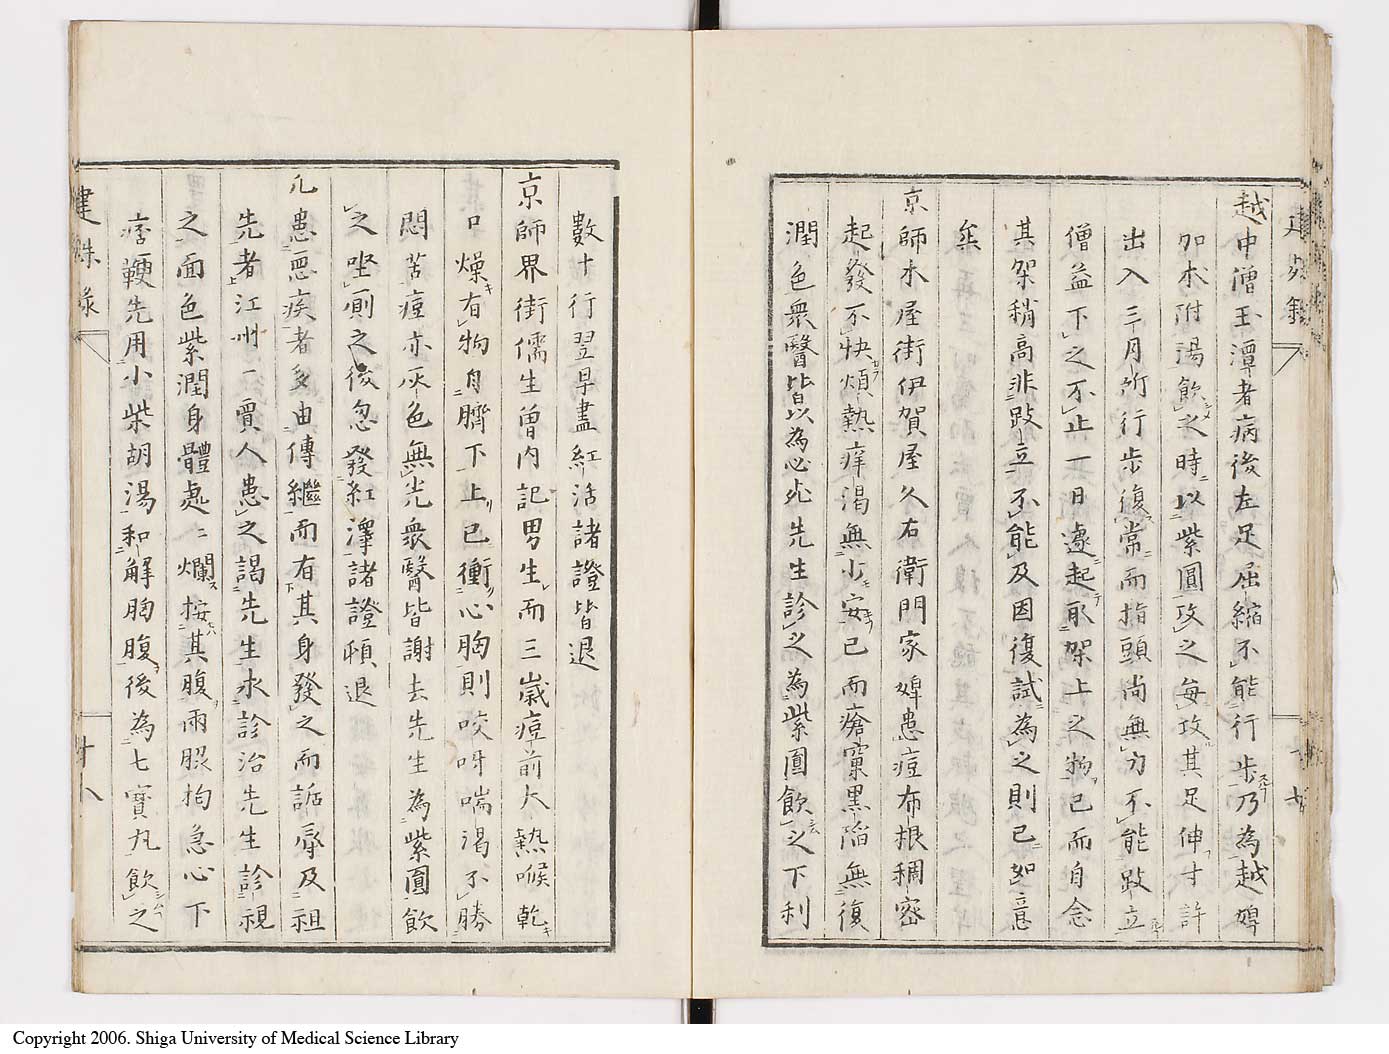 越中僧玉潭者病後左足屈縮不能行歩乃為越婢
加朮附湯飲之時以紫圓攻之毎攻其足伸寸許
出入三月所行歩復常而指頭尚無力不能跂立
僧益下之不止一日遽起取架上之物已而自念
其架稍高非跂立不能及因復試為之則已如意
矣
京師木屋街伊賀屋久右衛門家婢患痘布根稠密
起發不快煩熱痒渇無少安已而瘡窠黒陥無復
潤色衆醫皆以為必死先生診之為紫圓飲之下利
數十行翌早盡紅活諸證皆退
京師界街儒生曽内記男生而三歳痘前大熱喉乾
口燥有物自臍下上已衝心胸則咬呀喘渇不勝
悶苦痘亦灰色無光衆醫皆謝去先生為紫圓飲
之坐厠之後忽發紅澤諸證頓退
凡患悪疾者多由傳繼而有其身發之而詬辱及祖
先者江州一賈人患之謁先生求診治先生診視
之面色紫潤身體處〻爛按其腹両脇拘急心下
痞鞕先用小柴胡湯和解胸腹後為七寶丸飲之
建殊録
十八
Copyright 2006. Shiga University of Medical Science Library